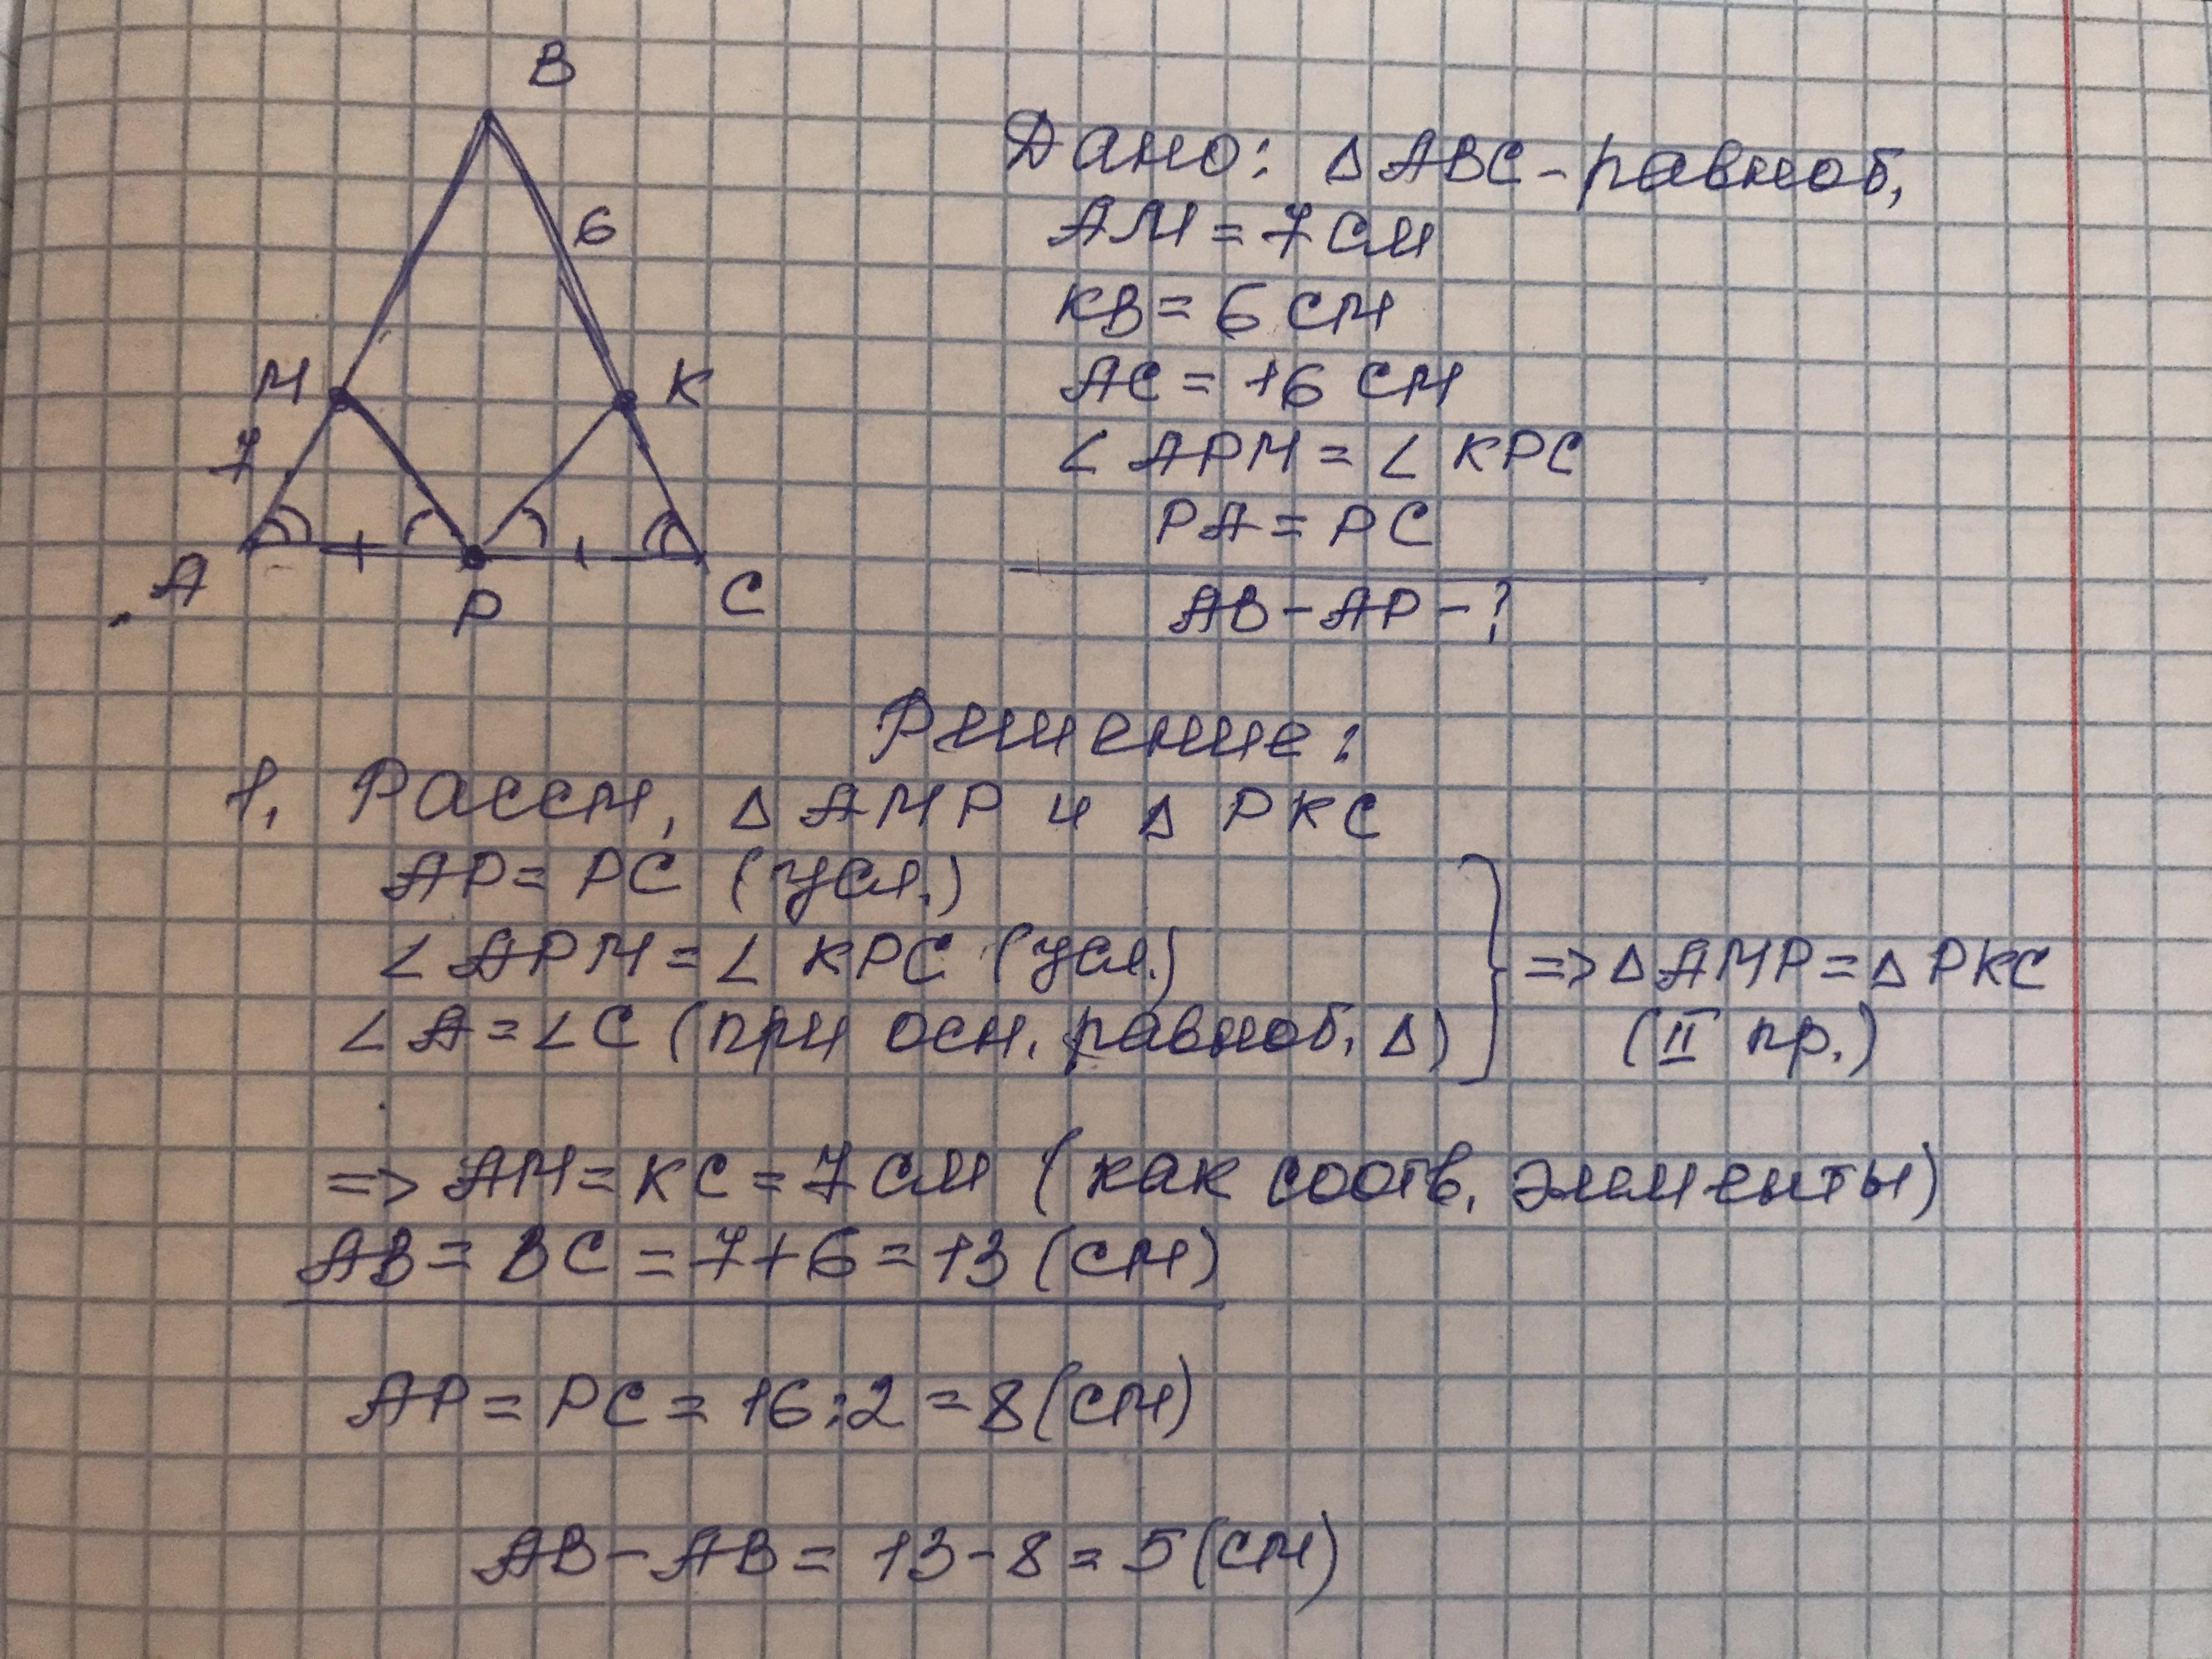 B
6
M
K
7
A
P
C
Дано: Δ ABC - равноб,
AM = 7 см
KB = 6 см
AC = 16 см
∠ APM = ∠ KPC
PA = PC
AB - AP - ?
Решение:
1. Рассм, Δ AMP и Δ PKC
AP = PC (усл.)
∠ APM = ∠ KPC (усл.)
=> Δ AMP = Δ PKC
∠ A = ∠ C (при осн. равноб. Δ)
(II пр.)
=> AM = KC = 7 см (как соотв. элементы)
AB = BC = 7+6 = 13 (см)
AP = PC = 16:2 = 8 (см)
AB - AB = 13 - 8 = 5 (см)